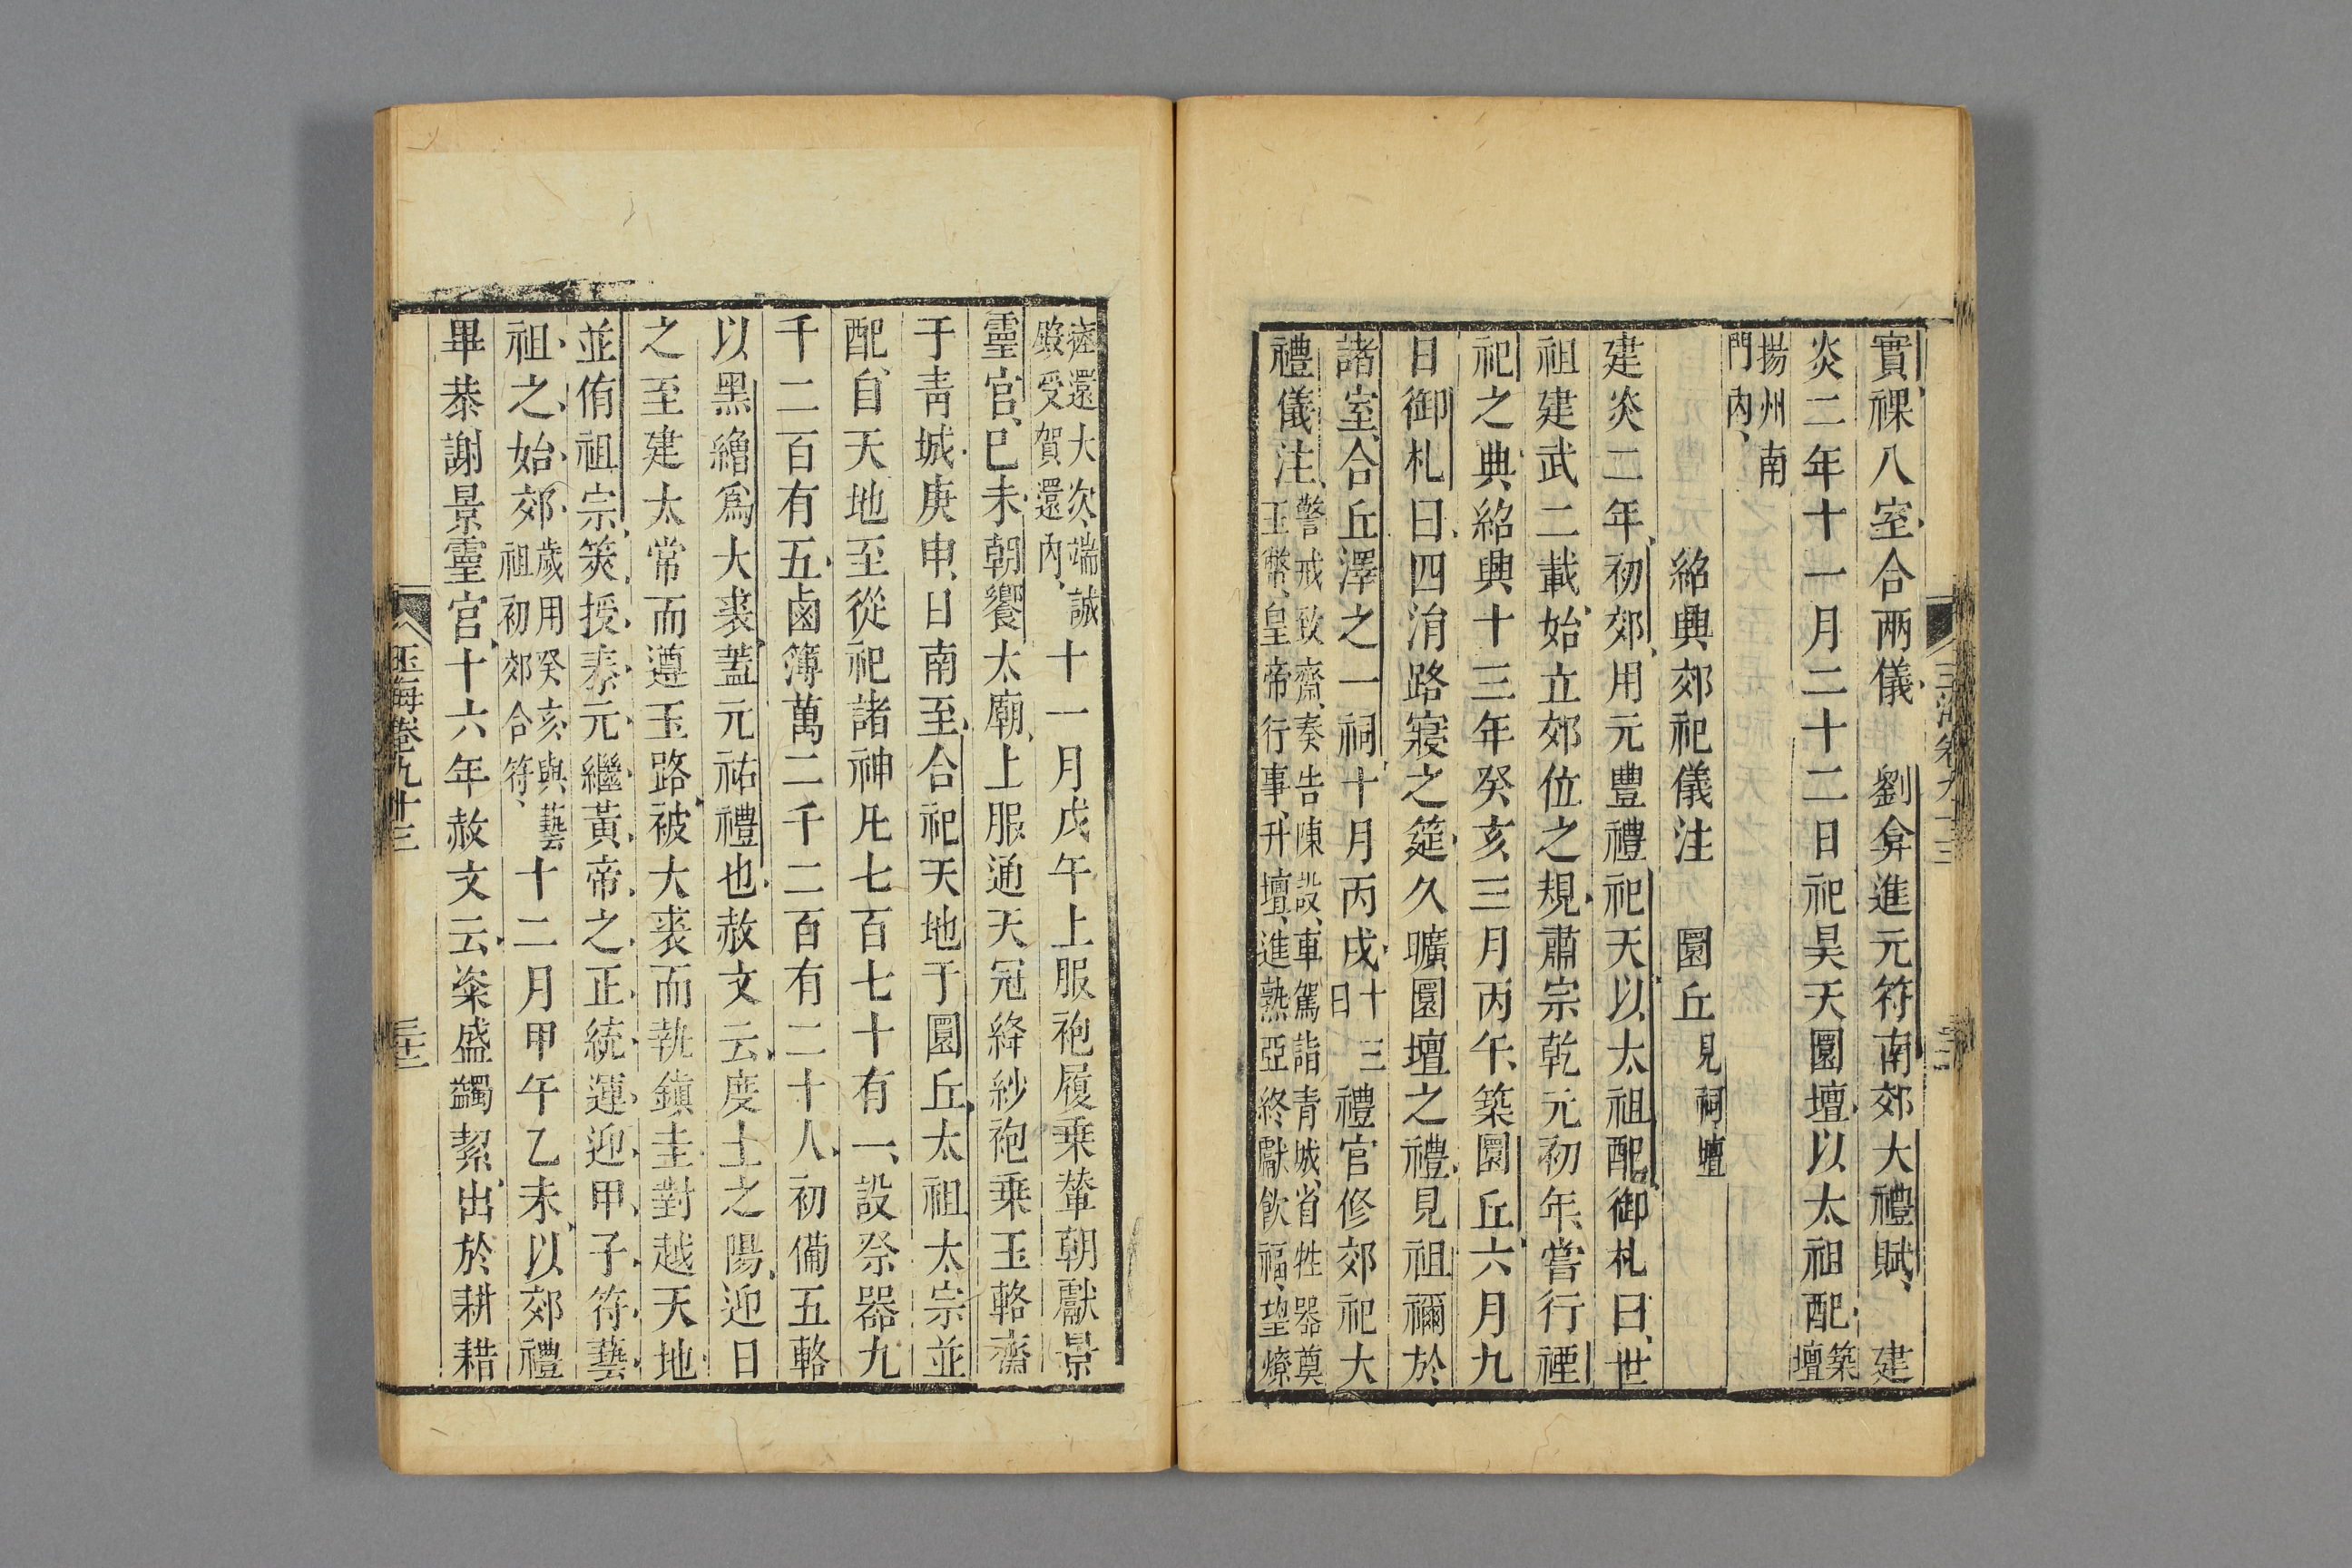 實祼八室合兩儀 劉弇進元符南郊大禮賦 建
炎二年十一月二十二日祀昊天圜壇以太祖配築壇
揚州南門內
紹興郊祀儀注 圜丘見祠壇
建炎二年初郊用元豐禮祀天以太祖配御札曰世
祖建武二載始立郊位之規肅宗乾元初年嘗行禋
祀之典紹興十三年癸亥三月丙午築圜丘六月九
日御札曰四消路寢之筵久曠圜壇之禮見祖禰於
諸室合丘澤之一祠十月丙戌十三日禮官修郊祀大
禮儀注警戒致齋奏告陳設車駕詣青城省牲器奠玉幣皇帝行事升壇進熟亞終獻飲福望燎
瘞還大次端誠殿受賀還內十一月戊午上服袍履乗輦朝獻景
靈宮己未朝饗太廟上服通天冠絳紗袍乗玉輅齋
于青城庚申日南至合祀天地于圜丘太祖太宗並
配自天地至從祀諸神凡七百七十有一設祭器九
千二百有五鹵簿萬二千二百有二十八初備五輅
以黑繒爲大裘蓋元祐禮也赦文云度土之陽迎日
之至建太常而遵玉路被大裘而執鎮圭對越天地
並侑祖宗筴授泰元繼黃帝之正統運迎甲子符藝
祖之始郊歲用癸亥與藝祖初郊合符十二月甲午乙未以郊禮
畢恭謝景靈宮十六年赦文云粢盛蠲絜出於耕耤
玉海卷九十三